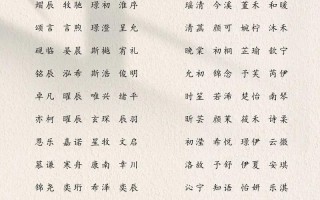 熠辰 牧驰 璟初 淮序 瑶清 今溪 婳祎 和暖
颂言 言亦 璟澄 星允 清颜 颜可 婉柠 沐禾
砚临 晏晨 斯樾 宵礼 晚棠 初桐 芷璇 歆宁
铭辰 泓希 斯浩 俊明 允初 锦念 予芙 芮伊
卓凡 曜辰 唯兴 绪平 时笙 若泽 楚怡 南琴
亦宸 曜辰 玄琛 辰羽 昕芸 颜漾 初禾 诗柔
恩乐 嘉诺 星牧 文韬 初滢 希悦 璟伊 云微
慕谦 寒舟 康南 幸川 洛故 予舒 伊夏 安琪
锦尧 奕珩 希泽 奕辰 沁宁 知语 怡妍 乐淇